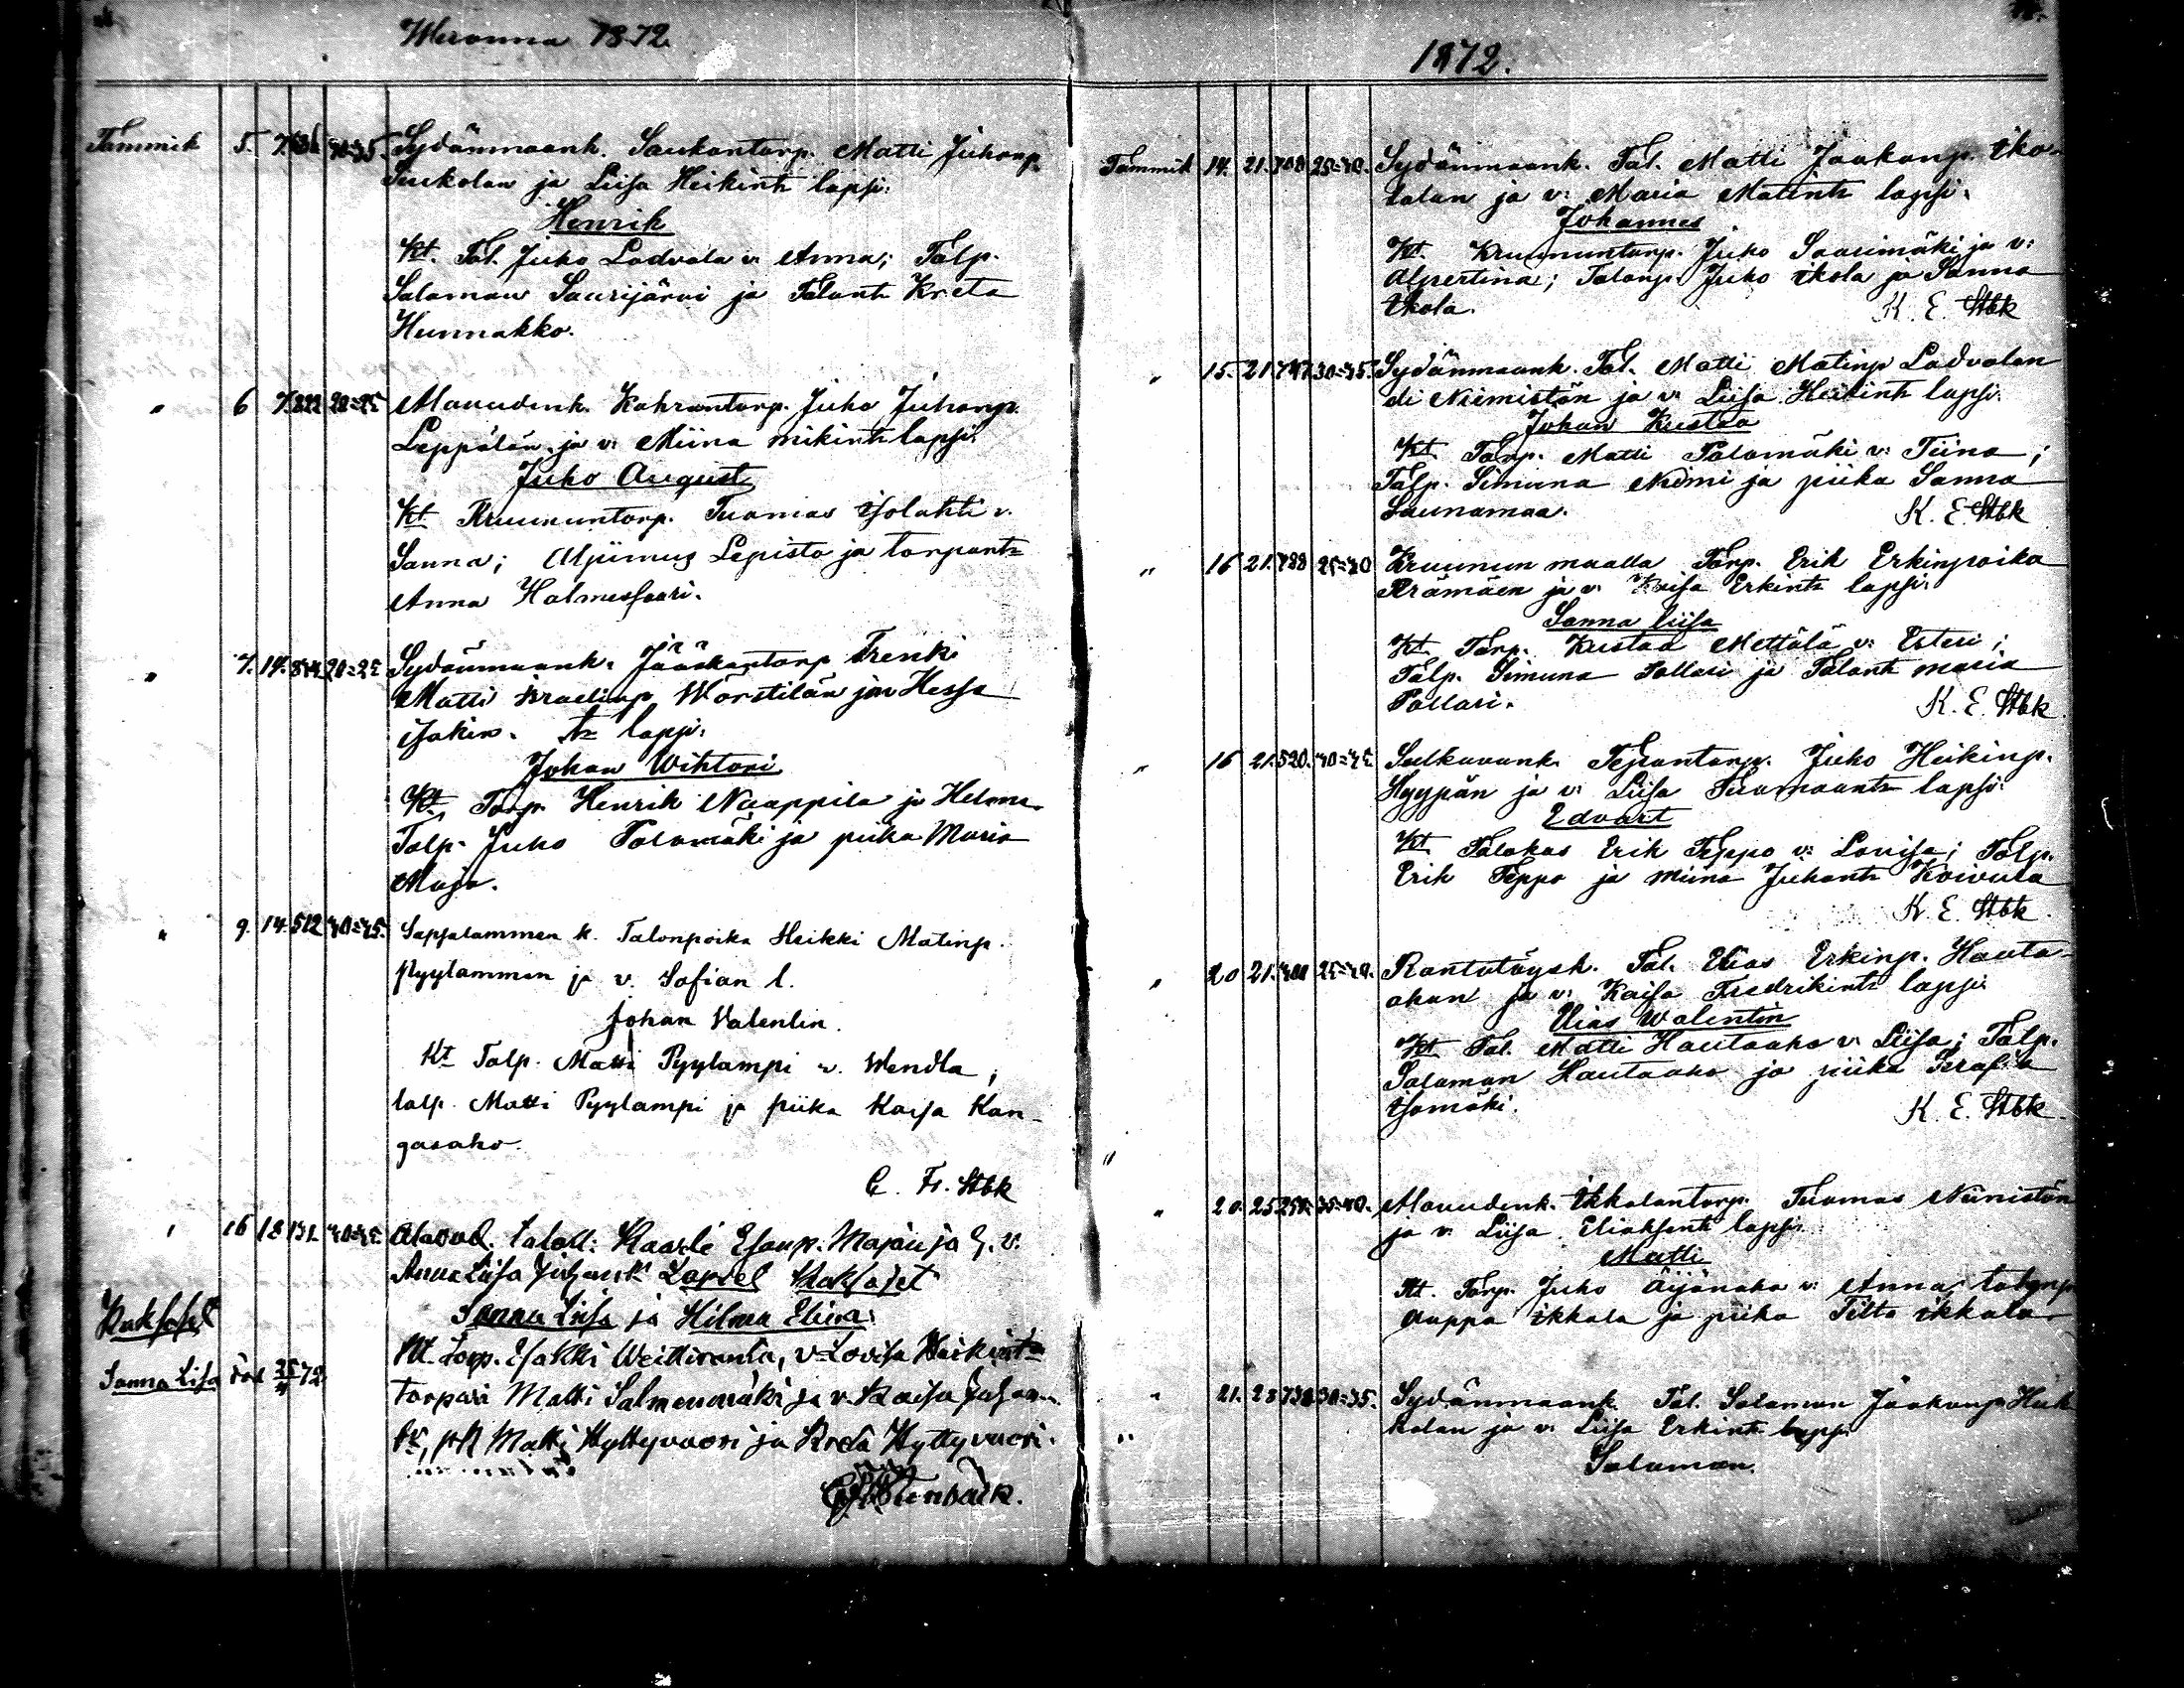 1872
Tammik 5. 7. 40=45. Sydänmaank. Saukontorp. Matti Juhonp.
Luukolan ja Liisa Heikint lapsi:
Henrik
Kt. Tal. Juho Ladvala v. Anna; Talp.
Salomon Saurijärvi ja Talont Kreta
Hunnakko.
" 6 7. 822 20=25 Mouudenk. Kahrantorp. Juho Juhonp.
Leppälän ja v: Miina mikint lapsi:
Juho August
Kt Kruununtorp. Tuomas Isolahti v.
Sanna; Alpiinus Lepisto ja torpant=
Anna Halmessaari.
" 7. 14. 20=25 Sydänmaank. Jääskantorp Trenki
Matti Israelinp Wörstilän ja v Hessa
Isakin. t= lapsi:
Johan Wihtori
Kt, Torp. Henrik Naappila ja Helena
Talp. Juho Palomäki ja piika Maria
Maja.
" 9. 14. 512 40=45. Sapsalammen k. Talonpoika Heikki Matinp.
Pyylammen ja v. Sofian l.
Johan Valentin.
Kt Talp. Matti Pyylampi v. Wendla;
talp. Matti Pyylampi ja piika Kaisa Kan-
gasaho.
C. Fr. Stbk
" 16 18 131 40=45. Alavud. taloll. Kaarle Esaup. Majan ja h. v.
Anna Liisa Juhant. Lapset Kaksoset
Sanna Liisa ja Hilma Elina:
Kaksoset
Kt. torp. Esakki Weittiranta, v. Lovisa Heikint=
Sanna Lisa död 25/4 72
torpari Matti Salmenmäki ja v. Kaisa Juhan.
tr, pR Matti Hyttyvuori ja Kreta Hyttyvuori.
Stenbäck.
1872.
Tammik 14. 21. 708 25=30. Sydänmaank. Tal. Matti Jaakonp. Iko-
lalan ja v: Maria Matint= lapsi:
Johannes
Kt. Kruununtorp. Juho Saarimäki ja v:
Alpertina; Talonp. Juho Ikola ja Sanna
Ikola. K. E. Stbk
" 15. 21. 747. 30=35. Sydänmaank. Tal. Matti Matinp Ladvalan
di Niimistön ja v: Liisa Heikint lapsi:
Johan Kustaa
Kt. Torp. Matti Palomäki v: Tiina;
Talp. Simuna Niimi ja piika Sanna
Saunamaa. K. E. Stbk
" 16 21. 788 25=30 Kruunun maalla Torp. Erik Erkinpoika
Rämäen ja v: Kaisa Erkint= lapsi:
Sanna Liisa
Kt. Torp. Kustaa Mettälä v: Esteri;
Talp. Simuna Pollari ja Talont maria
Pollari. K. E. Stbk.
" 16 21. 520. 40=45 Sulkavank. Tepontorp. Juho Heikinp.
Hyypän ja v: Liisa Tuomaant= lapsi:
Edvart
Kt. Talokas Erik Teppo v: Lovisa; Talp.
Erik Teppo ja Miina Juhont= Koivula
K. E. Stbk.
" 20 21. 25=30. Rantatöysk. Tal. Elias Erkinp. Hauta-
ahon ja v: Kaisa Fredrikint= lapsi:
Elias Walentin
Kt. Tal. Matti Hautaaho v: Liisa; Talp.
Salomon Hautaaho ja piika Serafia
Isomäki. K. E. Stbk.
" 20. 25 Mouudenk. Ikkalantorp. Tuomas Niinistön
ja v: Liisa Eliaksent lapsi:
Matti
Kt. Torp. Juho Äijänaho v: Anna; talonp
Aappo Ikkala ja piika Tilta Ikkala
" 21. 28 738 30=35. Sydänmaank. Tal. Salomon Jaakonp Huh
kalan ja v: Liisa Erkint= lapsi:
Salomon.